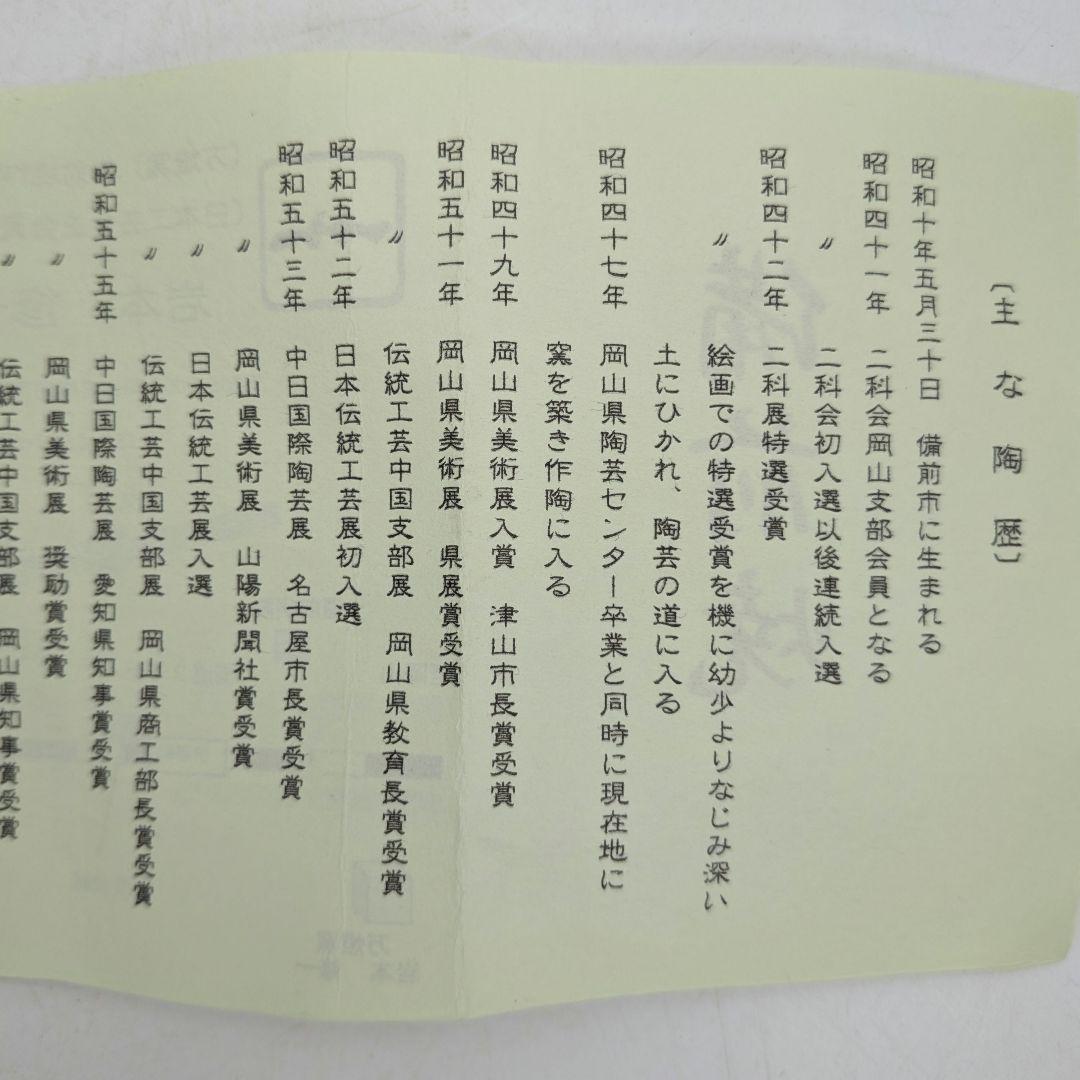 〔主な陶歴〕
昭和十年五月三十日　備前市に生まれる
昭和四十一年　二科会岡山支部会員となる
〃　二科会初入選以後連続入選
昭和四十二年　二科展特選受賞
〃　絵画での特選受賞を機に幼少よりなじみ深い
土にひかれ、陶芸の道に入る
昭和四十七年　岡山県陶芸センター卒業と同時に現在地に
窯を築き作陶に入る
昭和四十九年　岡山県美術展入賞　津山市長賞受賞
昭和五十一年　岡山県美術展　県展賞受賞
〃　伝統工芸中国支部展　岡山県教育長賞受賞
昭和五十二年　日本伝統工芸展初入選
昭和五十三年　中日国際陶芸展　名古屋市長賞受賞
〃　岡山県美術展　山陽新聞社賞受賞
〃　日本伝統工芸展入選
〃　伝統工芸中国支部展　岡山県商工部長賞受賞
昭和五十五年　中日国際陶芸展　愛知県知事賞受賞
〃　岡山県美術展　奨励賞受賞
〃　伝統工芸中国支部展　岡山県知事賞受賞